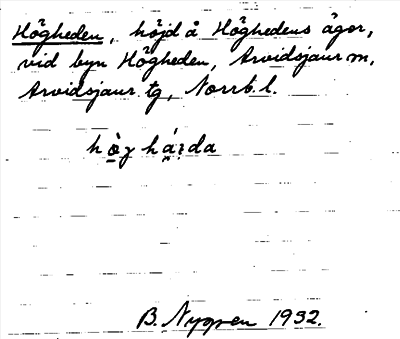 Högheden, höjd å Höghedens ägor,
vid byn Högheden, Arvidsjaur m.
Arvidsjaur tg, Norrb. l.
B. Nygren 1932.